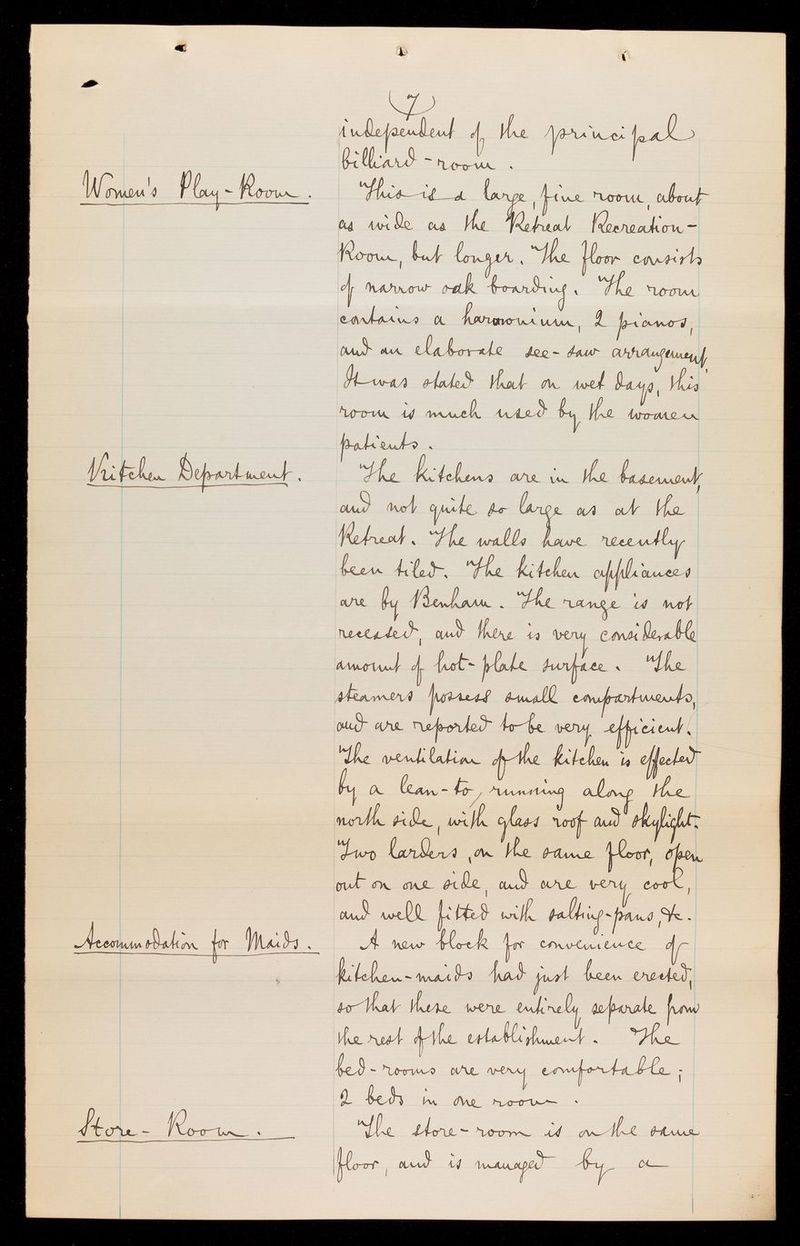 7
independent of the principal
billiard-room.
Women's Play-Room.
This is a large, fine room, about
as wide as the Retreat Recreation-
Room, but longer. The floor consists
of narrow oak boarding. The room
contains a harmonium, 2 pianos,
and an elaborate see-saw arrangement.
It was stated that on wet days, this
room is much used by the women
patients.
Kitchen Department.
The kitchens are in the basement,
and not quite so large as at the
Retreat. The walls have recently
been tiled. The kitchen appliances
are by Benham. The range is not
recessed, and there is very considerable
amount of hot-plate surface. The
steamers possess small compartments,
and are reported to be very efficient.
The ventilation of the kitchen is effected
by a lean-to, running along the
north side, with glass roof and skylight.
Two larders, on the same floor, open
out on one side, and are very cool,
and well fitted with salting-pans, &c.
Accommodation for Maids.
A new block for convenience of
kitchen-maids had just been erected,
so that these were entirely separate from
the rest of the establishment. The
bed-rooms are very comfortable;
2 beds in one room.
Store-Room.
The store-room is on the same
floor, and is managed by a